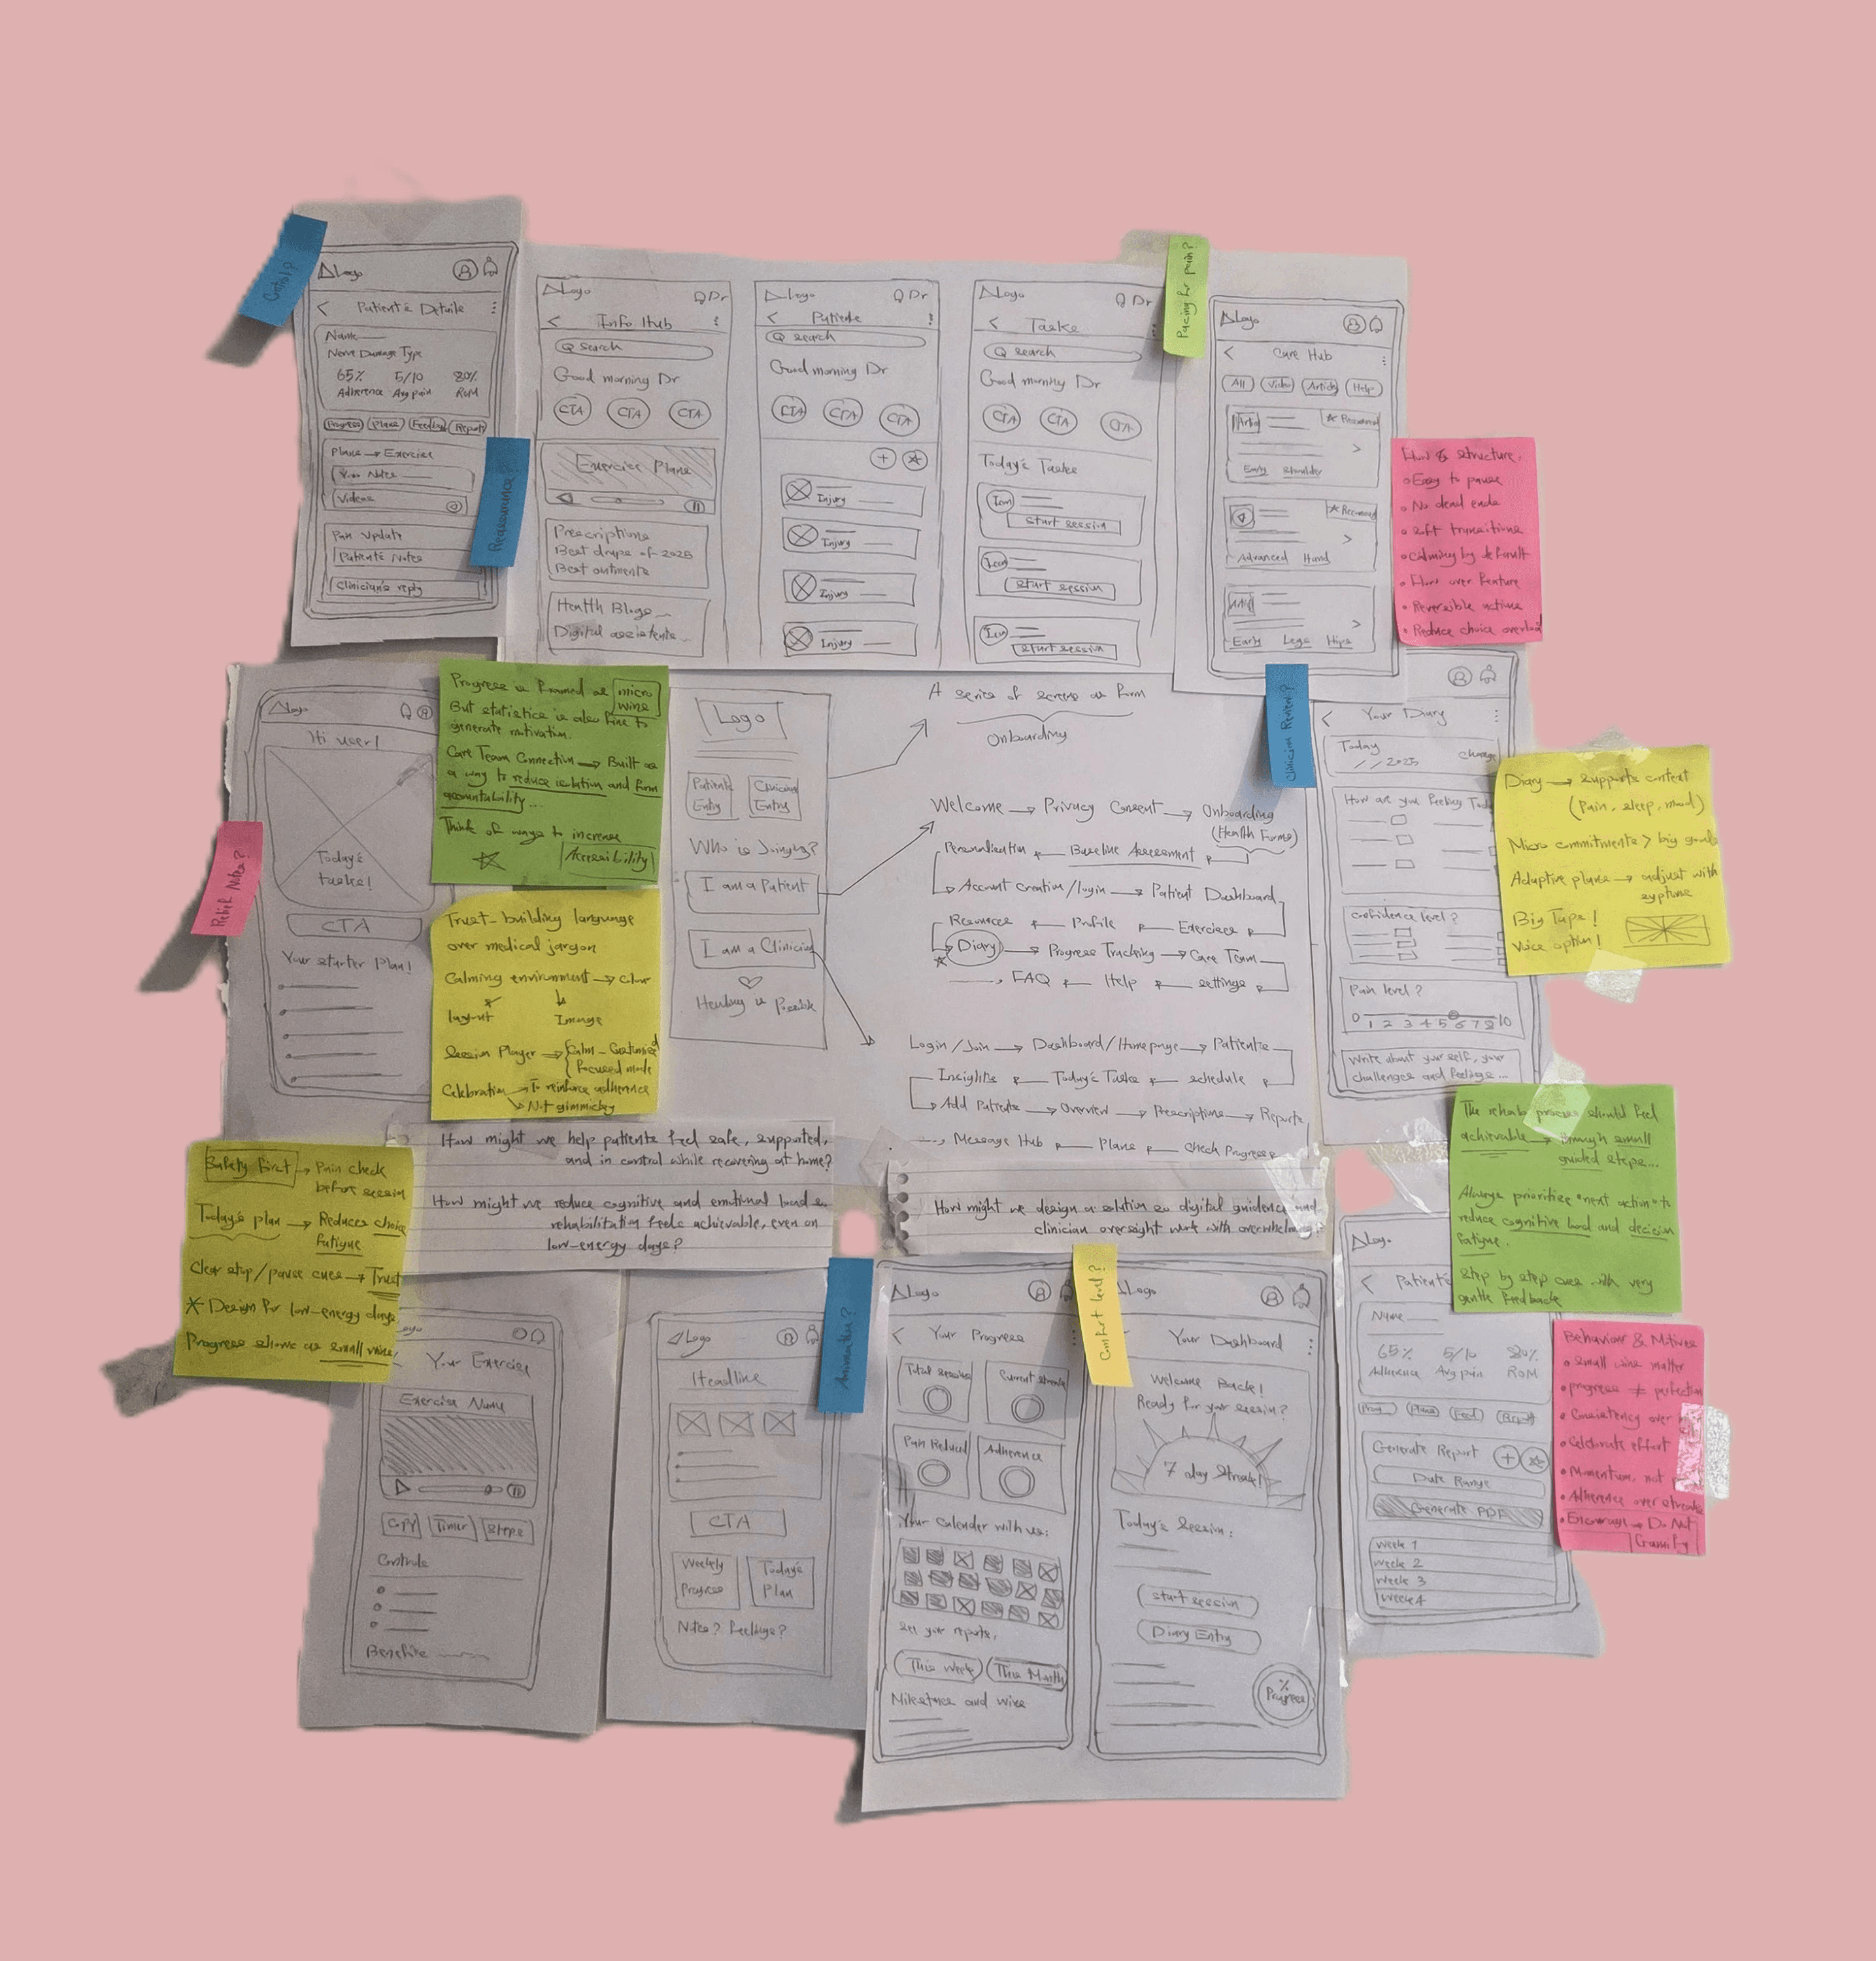 Control?
Logo
Patient's Details
Name
Nerve Damage Type
65% 5/10 80%
Adherence Avg pain ROM
Progress Plans Feedback Reports
Plans → Exercises
Your Notes
Videos
Pain Update
Patient's Notes
Clinician's reply
Reassurance?
Logo Dr
Info Hub
search
Good morning Dr
CTA CTA CTA
Exercise Plans
Prescriptions
Best drops of 2025
Best ointments
Health Blogs
Digital assistants
Logo Dr
Patients
search
Good morning Dr
CTA CTA CTA
+
Injury
Injury
Injury
Injury
Logo Dr
Tasks
search
Good morning Dr
CTA CTA CTA
Today's Tasks
Icon
start session
Icon
start session
Icon
start session
Pacing for pain?
Logo
Care Hub
All Video Articles Help
Recommend
Early Shoulder
Recommend
Advanced Hand
Early Legs Hips
Flow & structure.
• Easy to pause
• No dead ends
• Soft transitions
• Calming by default
• Flow over feature
• Reversible actions
• Reduce choice overload
Logo
Hi user!
Today's
tasks!
CTA
Your starter Plan!
Relief Notes?
Progress is framed as micro
wins
But statistics is also fine to
generate motivation.
Care Team Connection → Built as
a way to reduce isolation and form
accountability...
Think of ways to increase
Accessibility
Trust-building language
over medical jargon
Calming environment → Colour
Layout Image
Session Player → Calm - Customised
Focused mode
Celebration → To reinforce adherence
Not gimmicky
Logo
Patient Entry
Clinician Entry
Who is Joining?
I am a Patient
I am a Clinician
Healing is Possible
A series of screens as form
Onboarding
Welcome → Privacy Consent → Onboarding
(Health Forms)
Personalisation ← Baseline Assessment
Account Creation/login → Patient Dashboard
Resources ← Profile ← Exercises
Diary → Progress Tracking → Care Team
FAQ ← Help ← settings
Login/Join → Dashboard/Homepage → Patients
Insights ← Today's Tasks ← schedule
Add Patients → Overview → Prescriptions → Reports
Message Hub ← Plans ← Check Progress
Clinician Review?
Your Diary
Today
/ / 2025 Change
How are you Feeling Today
Confidence level?
Pain level?
0 1 2 3 4 5 6 7 8 10
Write about your self, your
challenges and feelings...
Diary → supports context
(Pain, sleep, mood)
Micro commitments > big goals
Adaptive plans → adjust with
symptoms
Big Taps!
Voice option!
The rehab process should feel
achievable → through small
guided steps...
Always prioritise "next action" to
reduce cognitive load and decision
fatigue.
Step by step cues with very
gentle feedback
Safety first → Pain check
before session
Today's plan → Reduces choice
fatigue
Clear stop/pause cues → Trust
* Design for low-energy days
Progress shows as small wins!
How might we help patients feel safe, supported,
and in control while recovering at home?
How might we reduce cognitive and emotional load so
rehabilitation feels achievable, even on
low-energy days?
How might we design a solution so digital guidance and
clinician oversight work with overwhelming?
Logo
Your Exercise
Exercise Name
Copy Timer Steps
Controls
Benefits
Logo
Headline
CTA
Weekly Progress
Today's Plan
Notes? Feelings?
Animation?
Logo
Your Progress
Total Sessions
Current Streak
Pain Reduced
Adherence
Your Calender with us:
See your reports.
This week This Month
Milestones and wins
Comfort level?
Logo
Your Dashboard
Welcome Back!
Ready for your session?
7 day Streak!
Today's Session:
start session
Diary Entry
% Progress
Logo
Patient's
Name
65% 5/10 80%
Adherence Avg pain ROM
Prog Plans Feed Report
Generate Report +
Date Range
Generate PDF
Week 1
Week 2
Week 3
Week 4
Behaviour & Motives
• Small wins matter
• Progress ≠ perfection
• Consistency over
• Celebrate effort
• Momentum, not
• Adherence over streaks
• Encourage → Do Not
Gamify